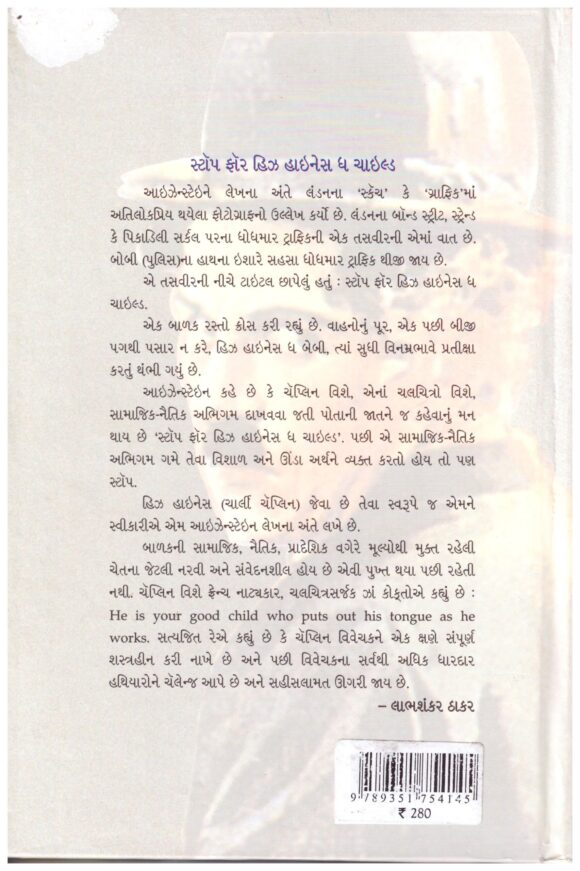 સ્ટૉપ ફૉર હિઝ હાઇનેસ ધ ચાઇલ્ડ
આઇઝેન્સ્ટેઇને લેખના અંતે લંડનના ‘સ્કૅચ’ કે ‘ગ્રાફિક’માં
અતિલોકપ્રિય થયેલા ફોટોગ્રાફનો ઉલ્લેખ કર્યો છે. લંડનના બૉન્ડ સ્ટ્રીટ, સ્ટ્રેન્ડ
કે પિકાડિલી સર્કલ પરના ધોધમાર ટ્રાફિકની એક તસવીરની એમાં વાત છે.
બોબી (પુલિસ)ના હાથના ઇશારે સહસા ધોધમાર ટ્રાફિક થીજી જાય છે.
એ તસવીરની નીચે ટાઇટલ છાપેલું હતું : સ્ટૉપ ફૉર હિઝ હાઇનેસ ધ
ચાઇલ્ડ.
એક બાળક રસ્તો ક્રોસ કરી રહ્યું છે. વાહનોનું પૂર, એક પછી બીજી
પગથી પસાર ન કરે, હિઝ હાઇનેસ ધ બેબી, ત્યાં સુધી વિનમ્રભાવે પ્રતીક્ષા
કરતું થંભી ગયું છે.
આઇઝેન્સ્ટેઇન કહે છે કે ચૅપ્લિન વિશે, એનાં ચલચિત્રો વિશે,
સામાજિક-નૈતિક અભિગમ દાખવવા જતી પોતાની જાતને જ કહેવાનું મન
થાય છે ‘સ્ટૉપ ફૉર હિઝ હાઇનેસ ધ ચાઇલ્ડ’. પછી એ સામાજિક-નૈતિક
અભિગમ ગમે તેવા વિશાળ અને ઊંડા અર્થને વ્યક્ત કરતો હોય તો પણ
સ્ટૉપ.
હિઝ હાઇનેસ (ચાર્લી ચૅપ્લિન) જેવા છે તેવા સ્વરૂપે જ એમને
સ્વીકારીએ એમ આઇઝેન્સ્ટેઇન લેખના અંતે લખે છે.
બાળકની સામાજિક, નૈતિક, પ્રાદેશિક વગેરે મૂલ્યોથી મુક્ત રહેલી
ચેતના જેટલી નરવી અને સંવેદનશીલ હોય છે એવી પુખ્ત થયા પછી રહેતી
નથી. ચૅપ્લિન વિશે ફ્રેન્ચ નાટ્યકાર, ચલચિત્રસર્જક ઝાં કોક્તોએ કહ્યું છે :
He is your good child who puts out his tongue as he
works. સત્યજિત રેએ કહ્યું છે કે ચૅપ્લિન વિવેચકને એક ક્ષણે સંપૂર્ણ
શસ્ત્રહીન કરી નાખે છે અને પછી વિવેચકના સર્વથી અધિક ધારદાર
હથિયારોને ચૅલેન્જ આપે છે અને સહીસલામત ઊગરી જાય છે.
– લાભશંકર ઠાકર
9 789351 754145
₹ 280